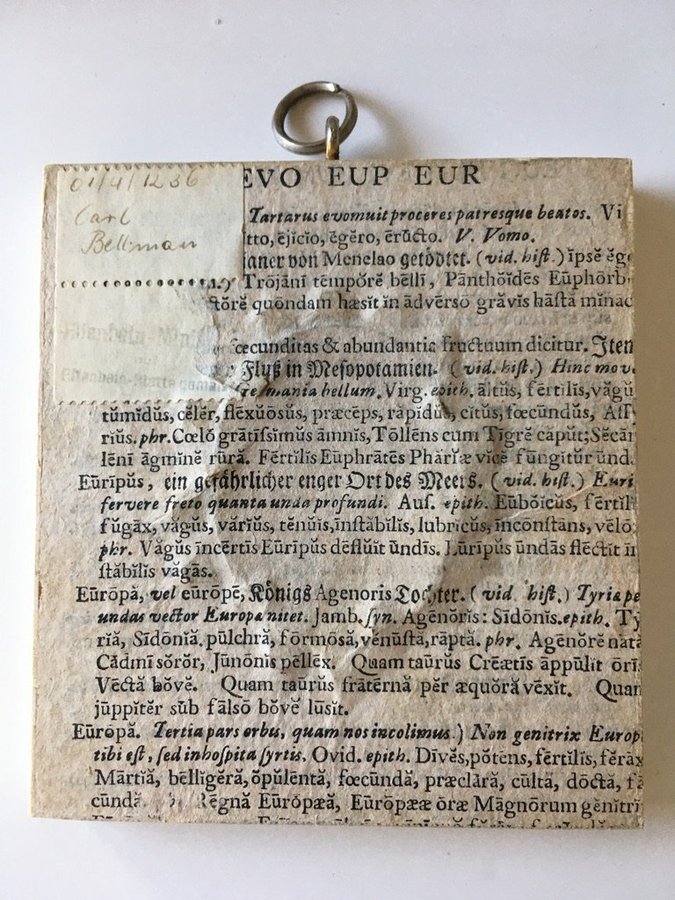 01/4/1236
Carl
Bellman
EVO EUP EUR
Tartarus evomuit proceres patresque beatos. Vi
tto, ējĭcĭo, ēgĕro, ērŭcto. V. Vomo.
janer von Menelao getödtet. (vid. hist.) īpsĕ ĕge
Trōjānī tēmpŏrĕ bēllī, Pānthŏĭdēs Eūphōrb
tŏrĕ quōndam hæsĭt ĭn ādvērsō grāvĭs hāſtā mĭnac
fœcunditas & abundantia fructuum dicitur. Item
Fluß in Mesopotamien. (vid. hiſt.) Hinc mov
Germania bellum. Virg. epith. āltŭs, fērtĭlĭs, văgŭ
tŭmĭdŭs, cĕlĕr, flēxŭōsŭs, præcēps, răpĭdŭs, cĭtŭs, fœcūndŭs, Aſſy
rĭus. phr. Cœlō grātīſsĭmŭs āmnĭs, Tōllēns cum Tīgrĕ căpŭt; Sĕcār
lēnī āgmĭnĕ rūră. Fērtĭlĭs Eūphrātēs Phărĭæ vĭcĕ fūngĭtŭr ūnd.
Eūrīpŭs, ein gefährlicher enger Ort des Meers. (vid. hiſt.) Euri
fervere freto quanta unda profundi. Auſ. epith. Eūbŏĭcŭs, fērtĭl
fŭgāx, văgŭs, vărĭŭs, tĕnŭĭs, īnſtăbĭlĭs, lubrĭcŭs, īncōnſtāns, vēlō
phr. Văgŭs īncērtĭs Eūrīpŭs dēflŭĭt ūndĭs. Eūrīpŭs ūndās flēctĭt ī
ſtăbĭlĭs văgās.
Eūrōpă, vel eūrōpē, Königs Agenoris Tochter. (vid. hiſt.) Tyria pe
undas vector Europa nitet. Jamb. ſyn. Agēnŏrĭs: Sīdōnĭs. epith. Tý
rĭă, Sīdōnĭă. pūlchră, fōrmōsă, vĕnūſtă, rāptă. phr. Agēnŏrĕ nātă
Cādmī sŏrŏr, Jūnōnĭs pēllēx. Quam taurŭs Crētæĭs āppŭlĭt ōrī
Vēctă bŏvĕ. Quam taurŭs frātērnă pĕr æquŏră vēxĭt. Quam
jūppĭtĕr sŭb fālsō bŏvĕ lūsĭt.
Eūrōpă. Tertia pars orbis, quam nos incolimus.) Non genitrix Europ
tibi eſt, ſed inhoſpita ſyrtis. Ovid. epith. Dīvĕs, pŏtēns, fērtĭlĭs, fĕrāx
Mārtĭă, bēllĭgĕră, ŏpŭlēntă, fœcūndă, præclără, cūltă, dōctă, f
cūndă. Rēgnă Eūrōpæă, Eūrōpææ ōræ Māgnōrum gĕnĭtrī